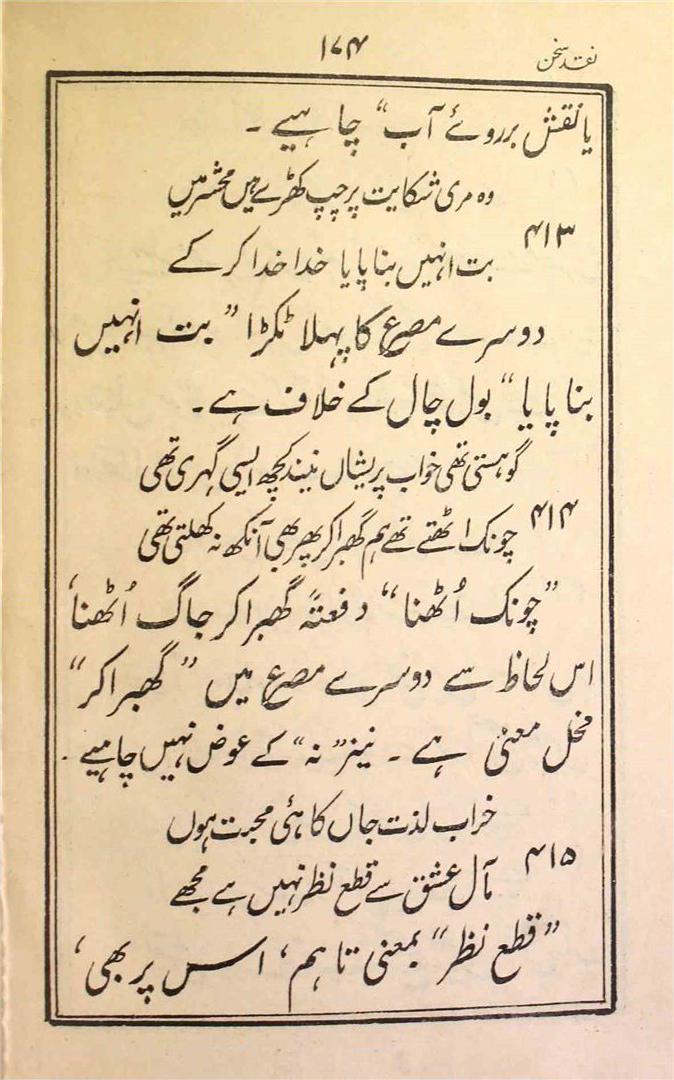 نقد سخن
۱۷۴
یا نقش بر روئے آب“ چاہیے ۔
وہ مری شکایت پر چپ کھڑے ہیں محشر میں
۴۱۳
بت انہیں بنا پایا خدا خدا کر کے
دوسرے مصرع کا پہلا ٹکڑا ”بت انہیں
بنا پایا“ بول چال کے خلاف ہے ۔
گو ہستی تھی خواب پریشاں نیند کچھ ایسی گہری تھی
۴۱۴
چونک اٹھتے تھے ہم گھبرا کر پھر بھی آنکھ نہ کھلتی تھی
”چونک اُٹھنا“ دفعتہً گھبرا کر جاگ اُٹھنا‘
اس لحاظ سے دوسرے مصرع میں ”گھبرا کر“
مخل معنیٰ ہے ۔ نیز ”نہ“ کے عوض نہیں چاہیے ۔
خراب لذت جاں کاہئی محبت ہوں
۴۱۵
مآل عشق سے قطع نظر نہیں ہے مجھے
”قطع نظر“ بمعنی تاہم‘ اس پر بھی‘